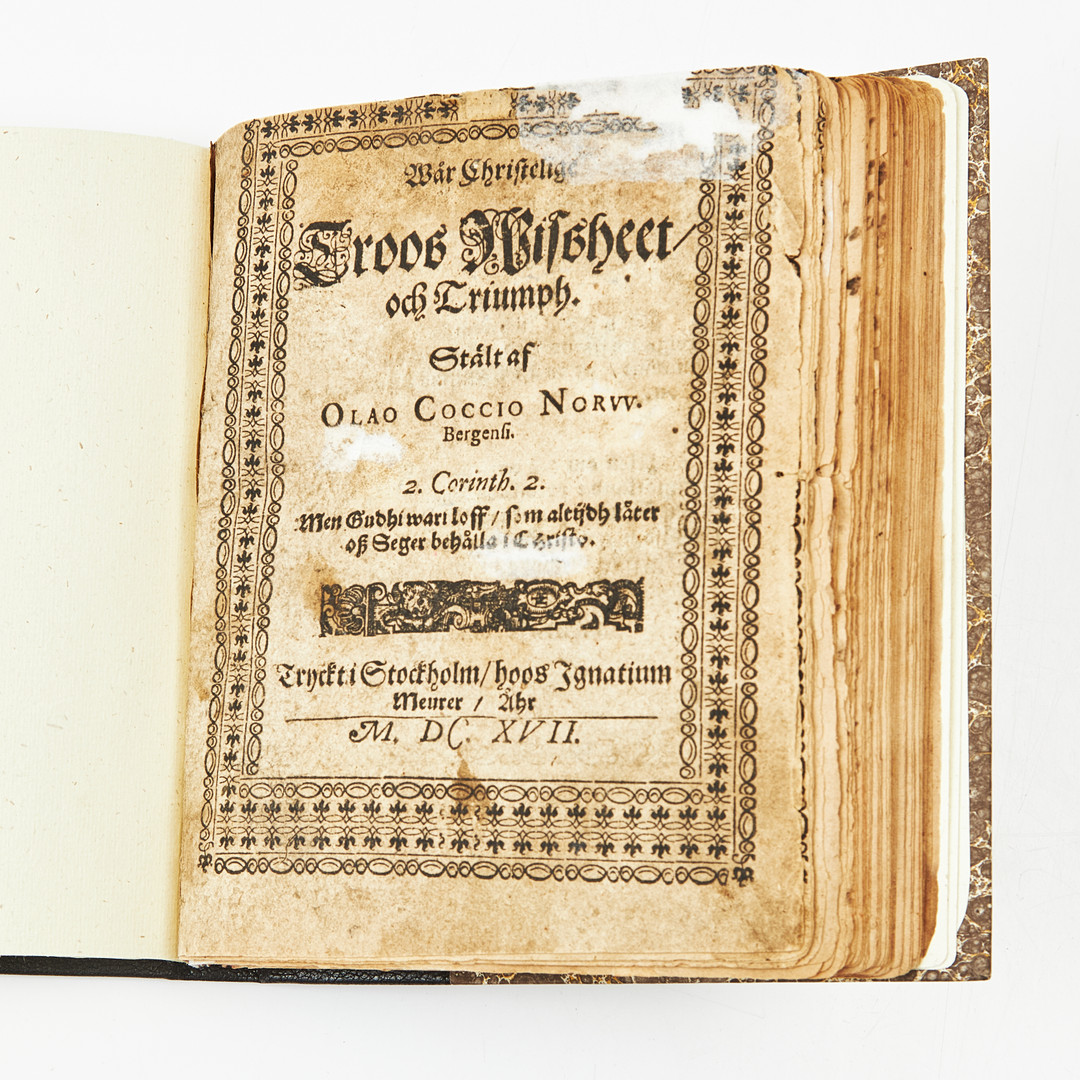 Wår Christelig
Troos Wissheet/
och Triumph.
Stält af
OLAO COCCIO NORVV.
Bergensi.
2. Corinth. 2.
Men Gudhi wari loff / som altijdh låter
oß Seger behålla i Christo.
Tryckt i Stockholm/ hoos Ignatium
Meurer / Åhr
M. DC. XVII.